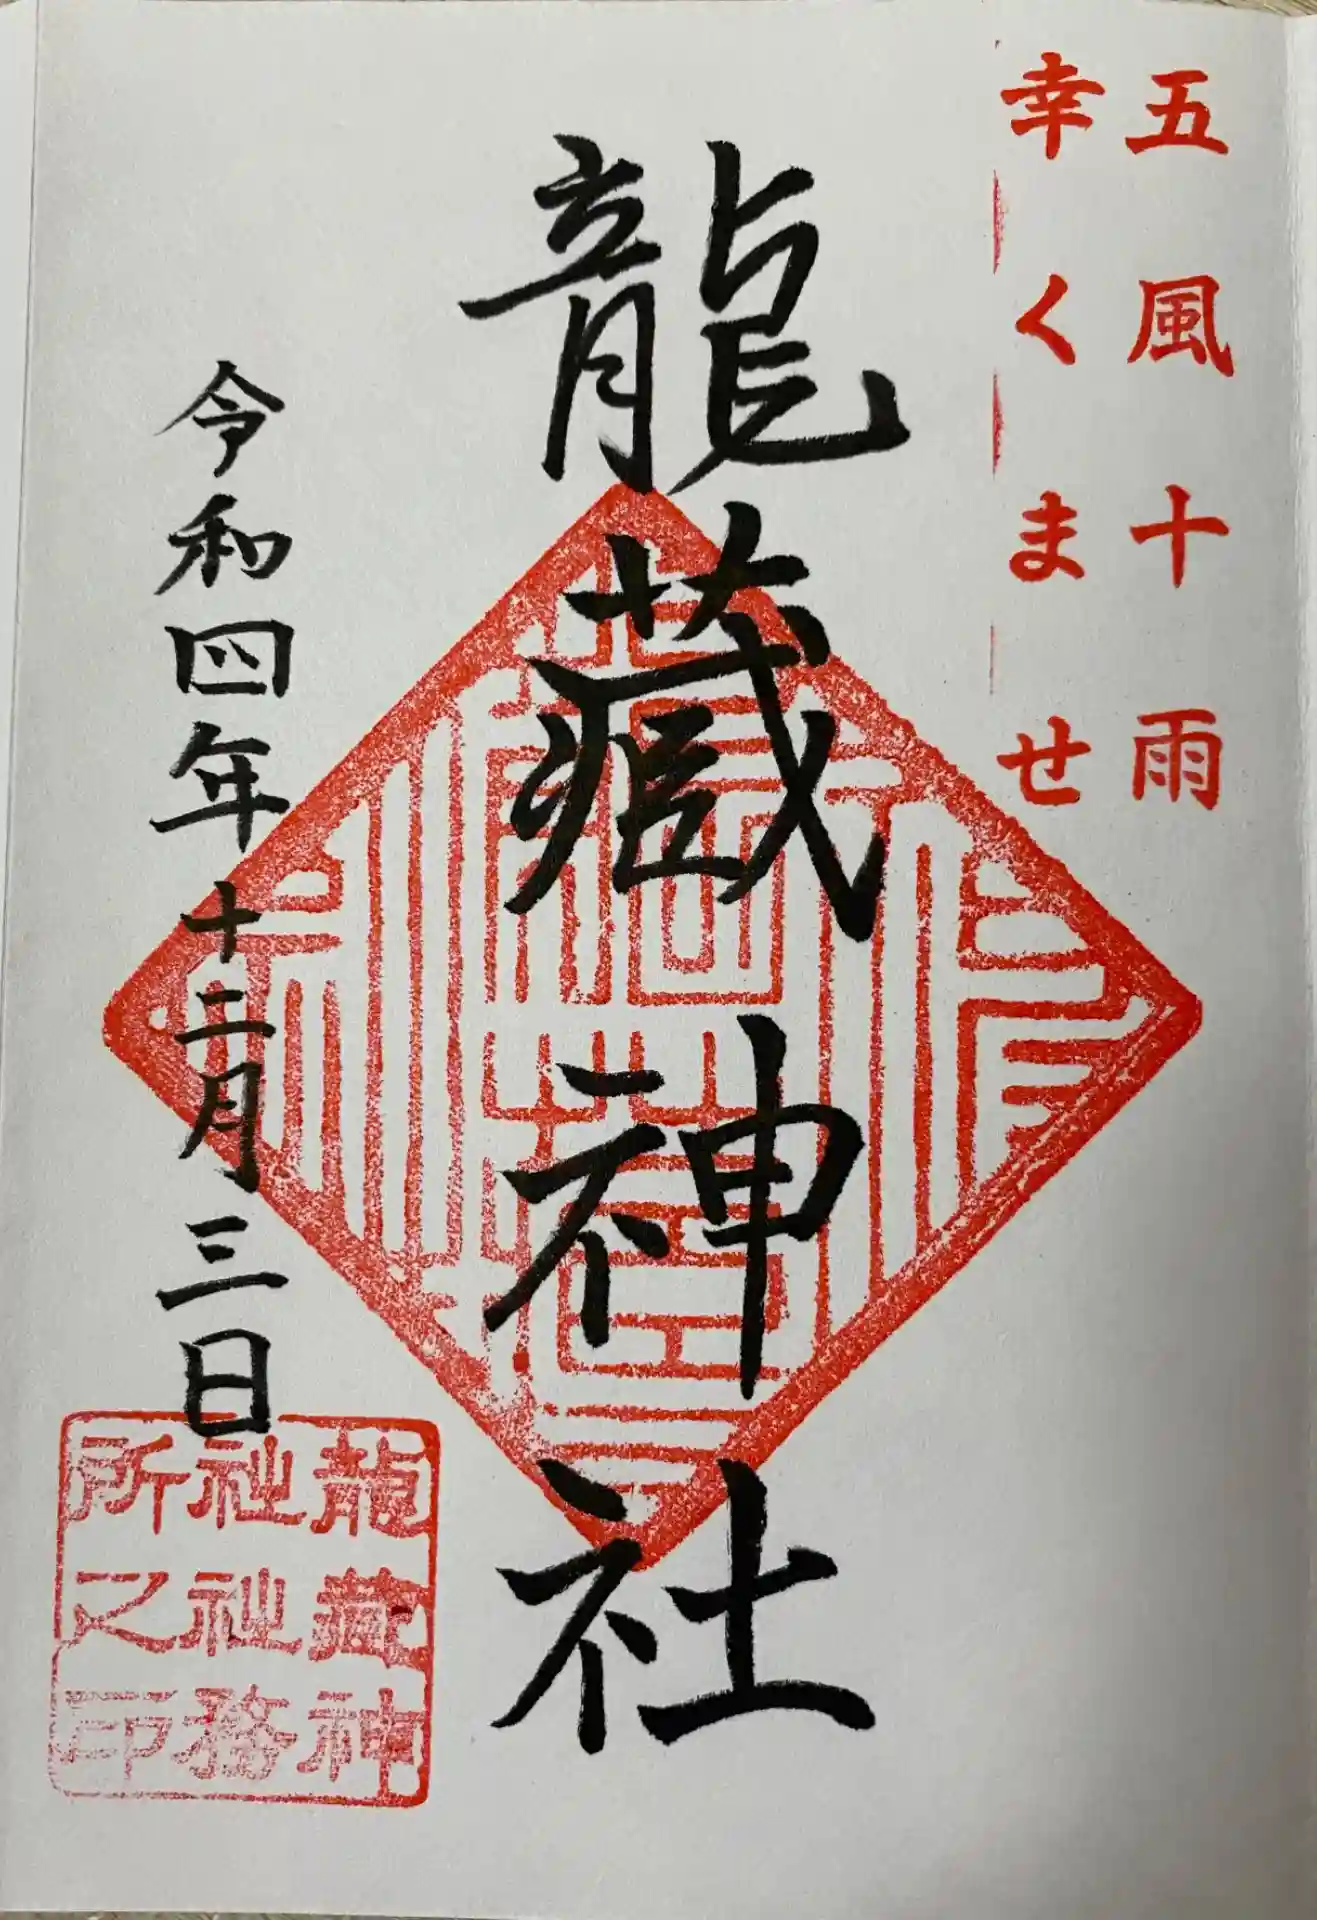 五風十雨
幸くませ
龍藏神社
令和四年十二月三日
龍藏神
社社務
所之印